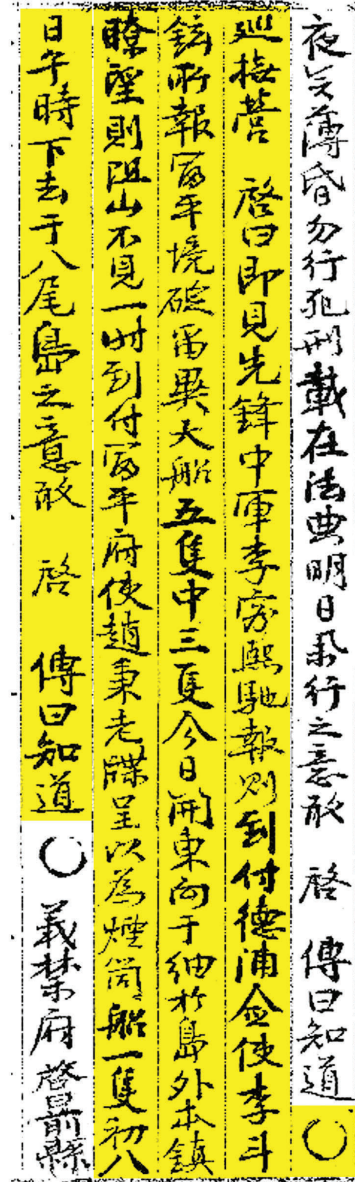 夜矣薄昏勿行犯刑載在法典明日擧行之意敢 啓 傳曰知道〇
巡撫營 啓曰卽見先鋒中軍李容熙馳報則到付德浦僉使李斗
鉉所報富平境碇留異大船五隻中三隻今日開東向于細於島外本鎭
瞭望則阻山不見一時到付富平府使趙秉老牒呈以爲煙筒船一隻初八
日午時下去于八尾島之意敢 啓 傳曰知道〇義禁府啓曰前縣